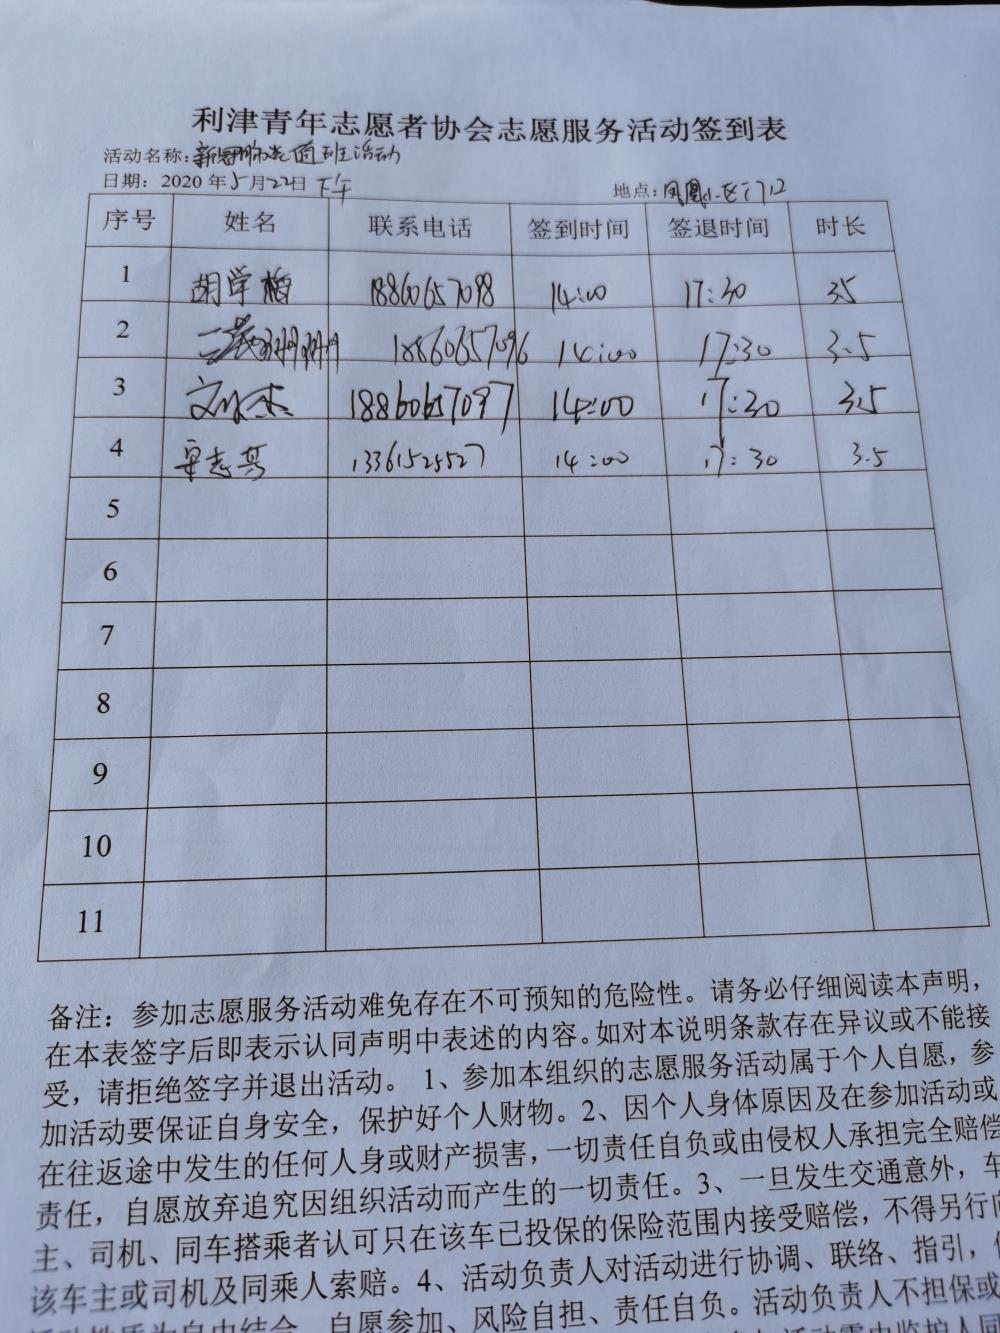 利津青年志愿者协会志愿服务活动签到表
活动名称: 值班活动
日期: 2020年5月22日下午
地点: 凤凰小区门口
序号 姓名 联系电话 签到时间 签退时间 时长
1 胡学梅 18860657098 14:00 17:30 35
2 18860657096 14:00 17:30 3.5
3 18860657097 14:00 17:30 3.5
4 志 13361525527 14:00 17:30 3.5
5
6
7
8
9
10
11
备注：参加志愿服务活动难免存在不可预知的危险性。请务必仔细阅读本声明，
在本表签字后即表示认同声明中表述的内容。如对本说明条款存在异议或不能接
受，请拒绝签字并退出活动。 1、参加本组织的志愿服务活动属于个人自愿，参
加活动要保证自身安全，保护好个人财物。2、因个人身体原因及在参加活动或
在往返途中发生的任何人身或财产损害，一切责任自负或由侵权人承担完全赔偿
责任，自愿放弃追究因组织活动而产生的一切责任。3、一旦发生交通意外，车
主、司机、同车搭乘者认可只在该车已投保的保险范围内接受赔偿，不得另行向
该车主或司机及同乘人索赔。4、活动负责人对活动进行协调、联络、指引，
自愿参加、风险自担、责任自负。活动负责人不担保或